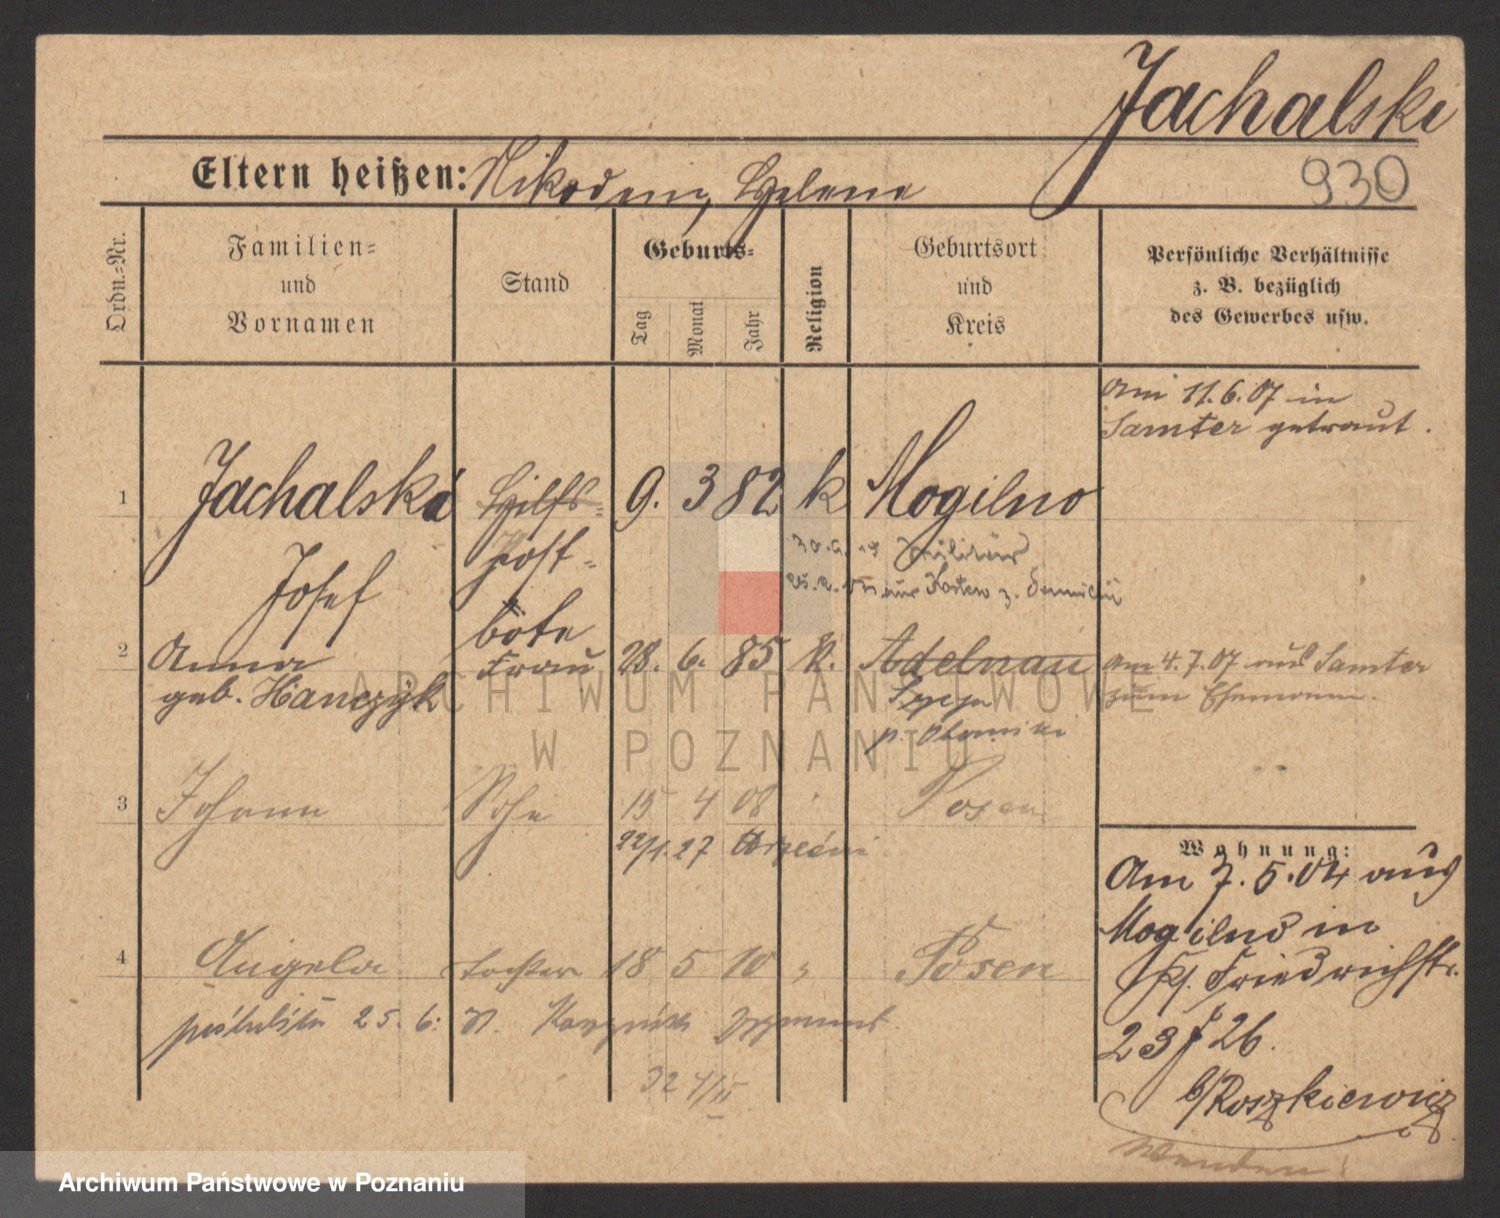 Jachalski
930
Eltern heißen: Nikodem, Helene
Ordn.=Nr.
Familien=
und
Vornamen
Stand
Geburts=
Tag
Monat
Jahr
Religion
Geburtsort
und
Kreis
Persönliche Verhältnisse
z. B. bezüglich
des Gewerbes usw.
Am 11.6.07 in
Samter getraut.
1 Jachalski Hilfs= 9. 3 82 k Mogilno
Josef Post=
bote
30.9. 19 Militär
2 Anna Frau 28. 6. 85 k. Adelnau am 4.7.07 aus Samter
geb. Hanczyk zum Ehemann.
3 Johann Sohn 15 4 08 Posen
22/1.27
Wohnung:
Am 7.5.04 aus
Mogilno in
Friedrichstr.
23 26.
b/Roszkiewicz
4 Angela Tochter 18 5 10 " Posen
25. 6.
32
Wenden!
ARCHIWUM PAŃSTWOWE
W POZNANIU
Archiwum Państwowe w Poznaniu